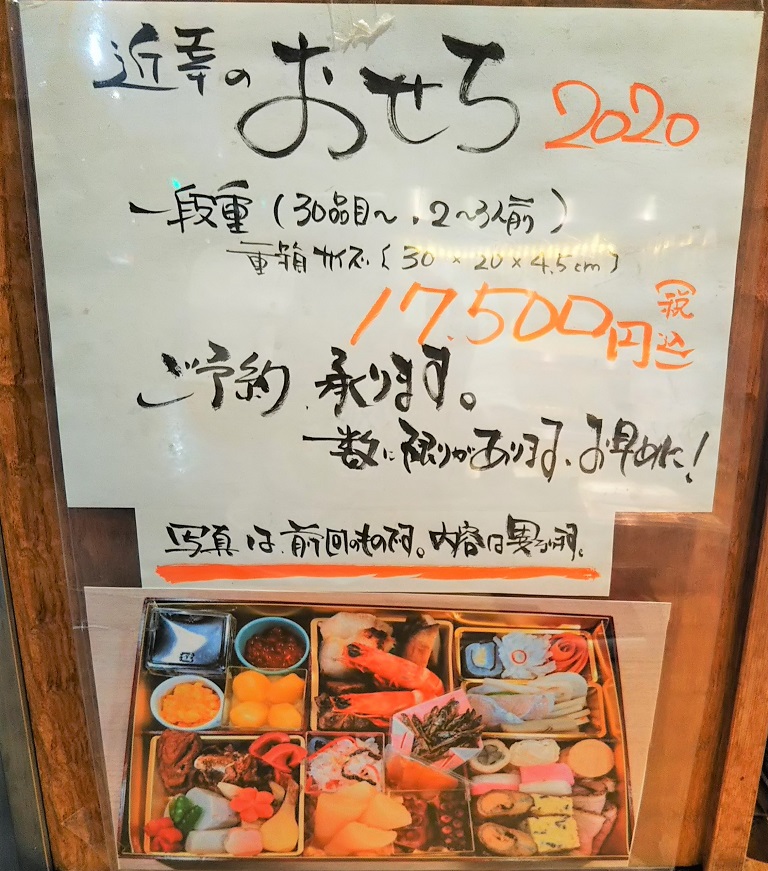 近幸のおせち 2020
一段重(30品目〜、2〜3人前)
重箱サイズ(30×20×4.5cm)
17,500円(税込)
ご予約 承ります。
数に限りがあります、お早めに!
写真は前回のものです。内容は異なります。